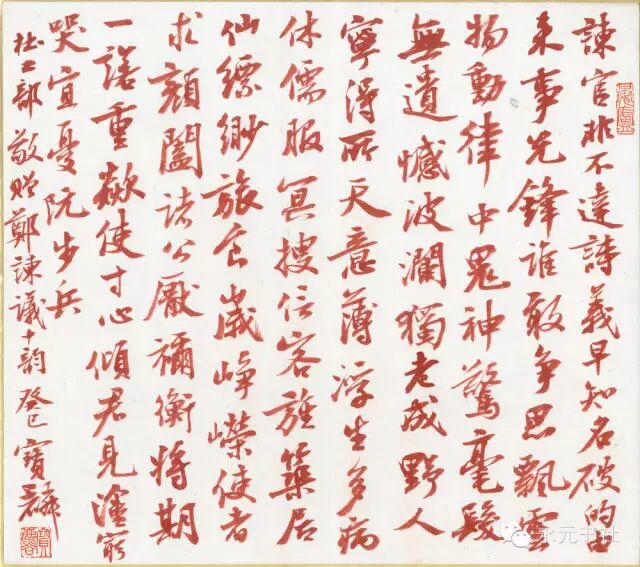 諫官非不達詩義早知名破的由
来事先鋒誰敢争思飄雲
物動律中鬼神驚毫髮
無遺憾波瀾獨老成野人
寧得所天意薄浮生多病
休儒服冥搜信客旌築居
仙縹緲旅食歲崢嶸使者
求顔闔諸公厭禰衡將期
一諾重歘使寸心傾君見塗窮
哭宜憂阮步兵
杜工部敬贈鄭諫議十韵 癸巳 寶麟
永元书社